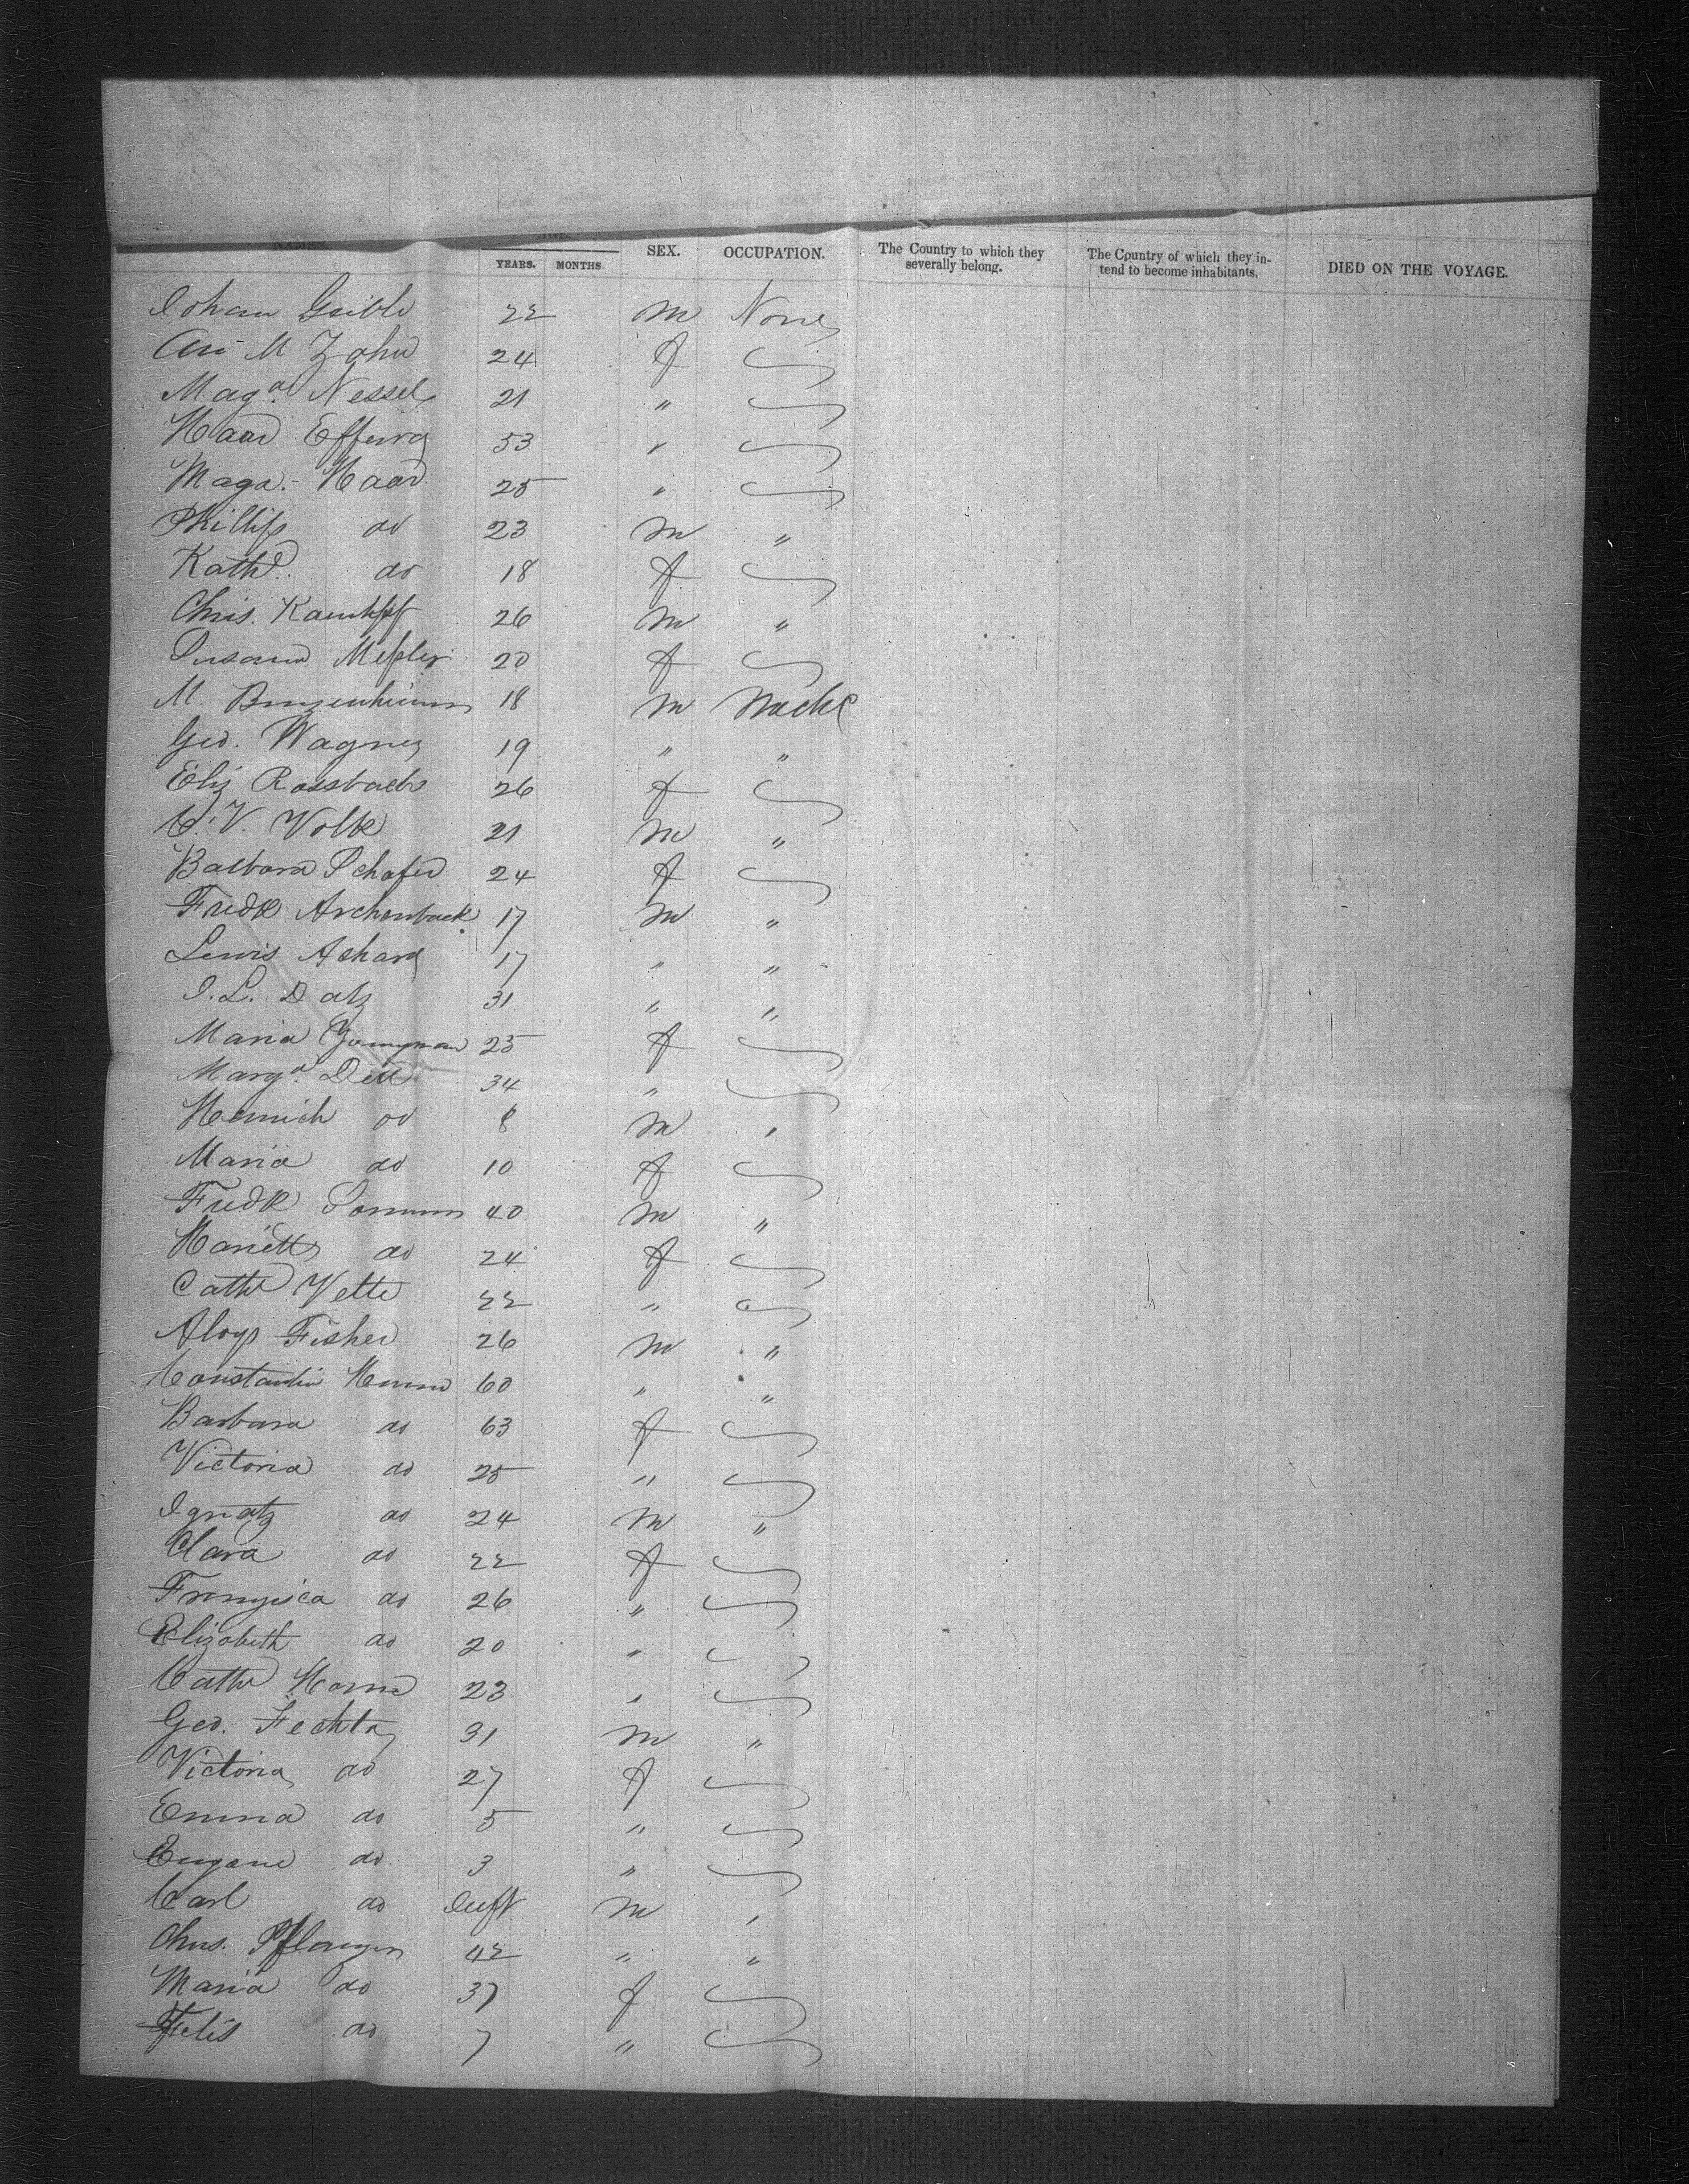 YEARS. MONTHS SEX. OCCUPATION. The Country to which they severally belong. The Country of which they intend to become inhabitants. DIED ON THE VOYAGE.
Johan 22 m None
M Zahn 24 f
Maga. Nessel 21 "
Haas 53 "
Maga. Haas 25 "
Phillip do 23 m "
Kathe do 18 f
Chris. 26 m "
Susana 20 f
M. 18 m
Geo. Wagner 19 " "
Eliz Rossbach 26 f
C. V. Volk 21 m "
Barbara Schafer 24 f
Fredk Archenback 17 m "
Lewis Achard 17 " "
J. L. Datz 31 " "
Maria Youngman 25 f
Marga. 34 "
Heinrich do 8 m "
Maria do 10 f
Fredk 40 m "
Hariett do 24 f
Cathe Vette 22 "
Aloys Fisher 26 m "
Constantin 60 " "
Barbara do 63 f
Victoria do 25 "
Ignatz do 24 m "
Clara do 22 f
Franzisca do 26 "
Elizabeth do 20 "
Cathe 23 "
Geo. Fechta 31 m "
Victoria do 27 f
Emma do 5 "
Eugene do 3 "
Carl do Inft m "
Chris. 42 " "
Maria do 37 f
Felis do 7 "